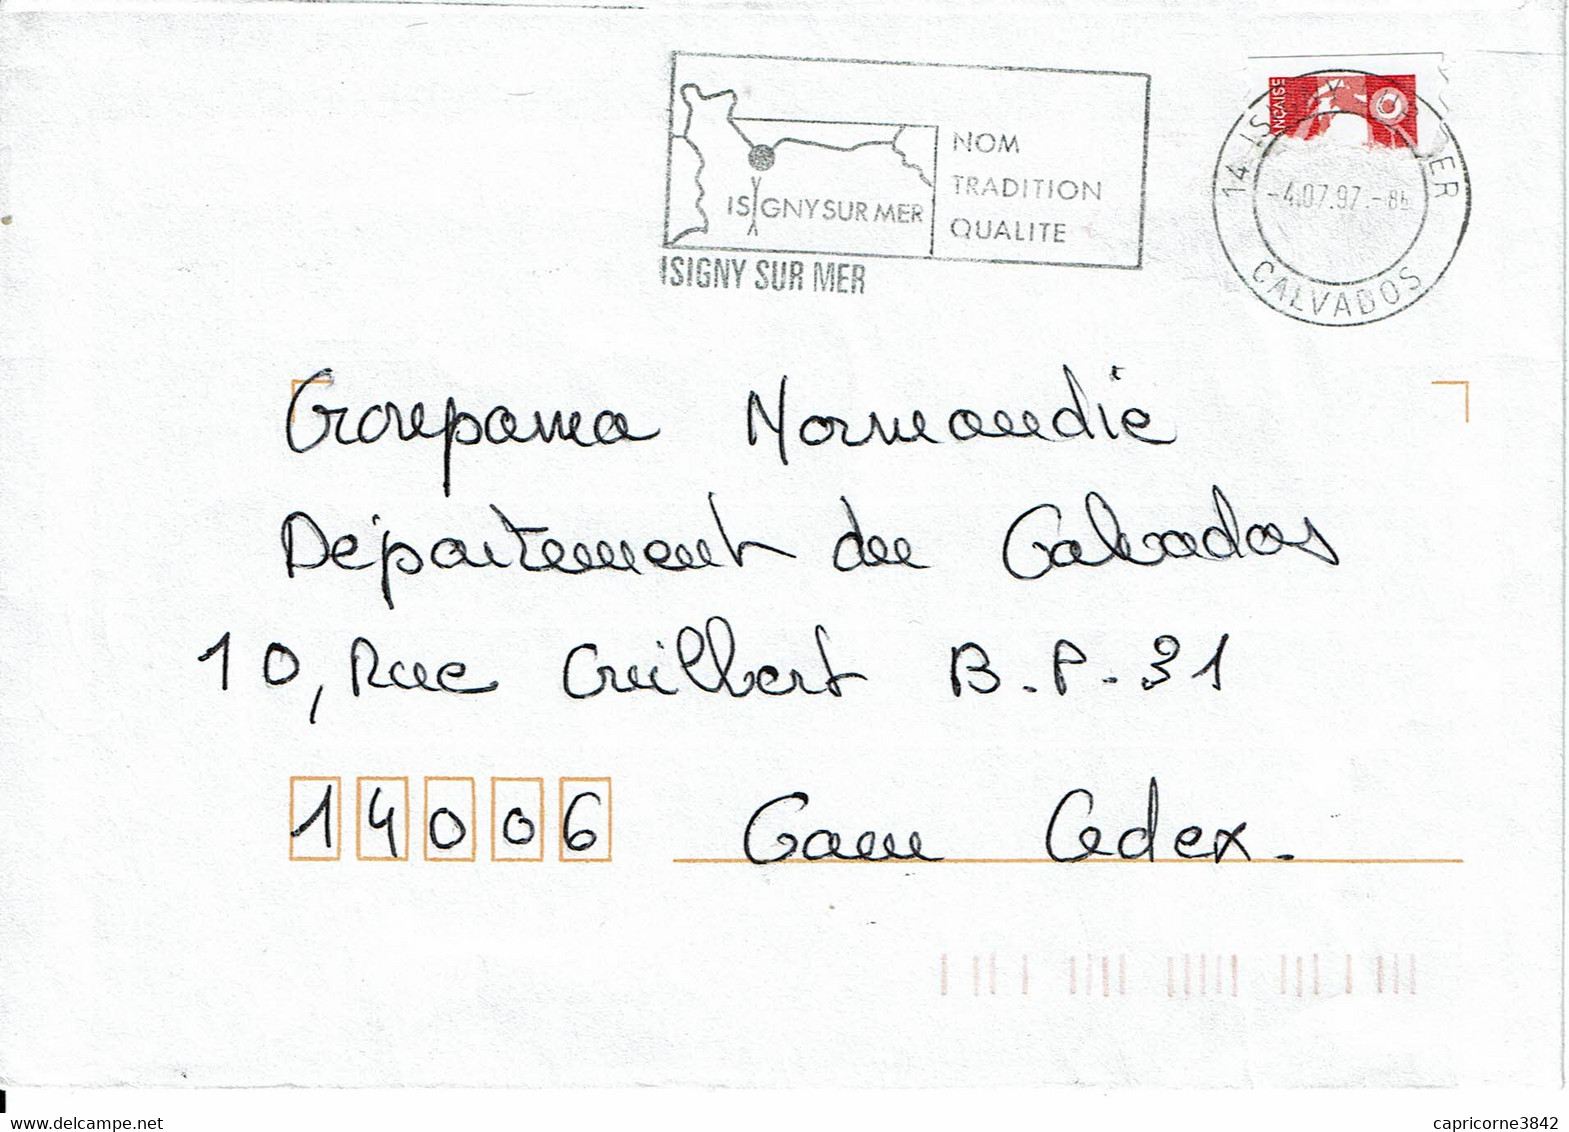 NOM
TRADITION
QUALITE
ISIGNY SUR MER
ISIGNY SUR MER
14 ISIGNY MER
-4.07.97.-8h
CALVADOS
Groupama Normandie
Département du Calvados
10, Rue Guilbert B.P.31
14006 Caen Cedex.
capricorne3842